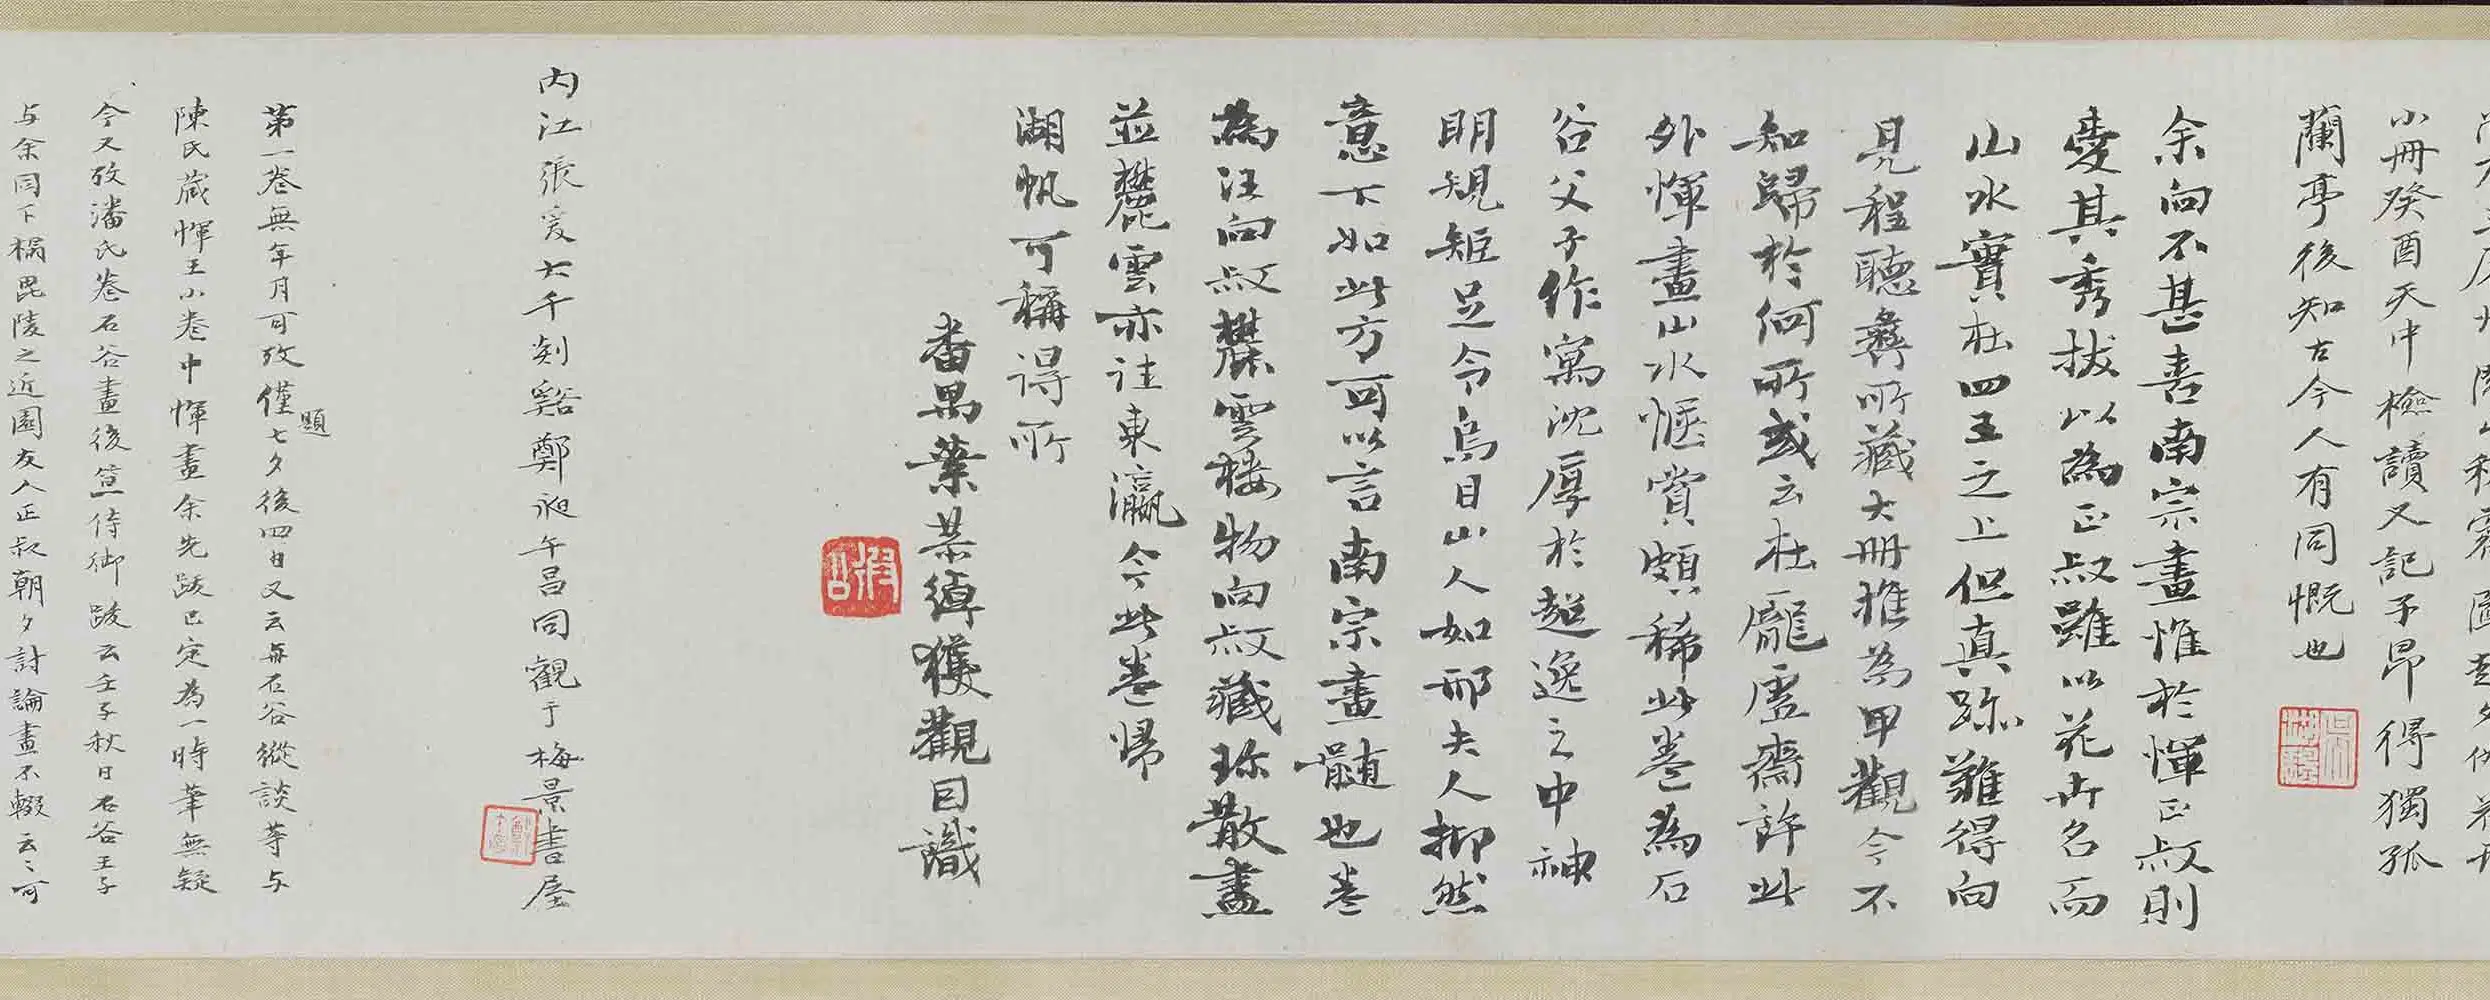 小冊癸酉天中檢讀又記子昂得獨孤
蘭亭後知古今人有同慨也
余向不甚喜南宗畫惟於惲正叔則
愛其秀拔以為正叔雖以花卉名而
山水實在四王之上但真跡難得向
見程聽彝所藏大冊推為甲觀今不
知歸於何所或云在龐虛齋許此
外惲畫山水愜賞頗稀此卷為石
谷父子作寓沈厚於超逸之中神
明規矩足令烏目山人如邢夫人抑然
意下如此方可以言南宗畫髓也卷
為汪向叔麓雲樓物向叔藏珎散盡
並麓雲亦歸東瀛今此卷歸
湖帆可稱得所
番禺葉恭綽獲觀因識
內江張爰大千剡谿鄭昶午昌同觀于梅景書屋
第一卷無年月可攷僅題七夕後四日又云每石谷縱談等与
陳氏藏惲王小卷中惲畫余先跋已定為一時筆無疑
今又攷潘氏卷石谷畫後笪侍御跋云壬子秋日石谷王子
与余同下榻毘陵之近園友人正叔朝夕討論畫不輟云〻可